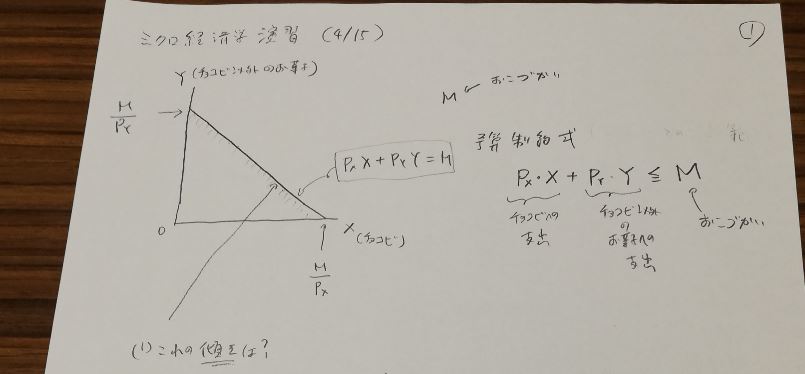 ミクロ経済学演習 (4/15)
①
Y (チョコビ以外のお菓子)
M ← おこづかい
M/PY →
予算制約式
PX X + PY Y = M
PX・X + PY・Y ≦ M
チョコビへの
支出
チョコビ以外
の
お菓子への
支出
おこづかい
0
X (チョコビ)
M/PX
(1) これの傾きは?